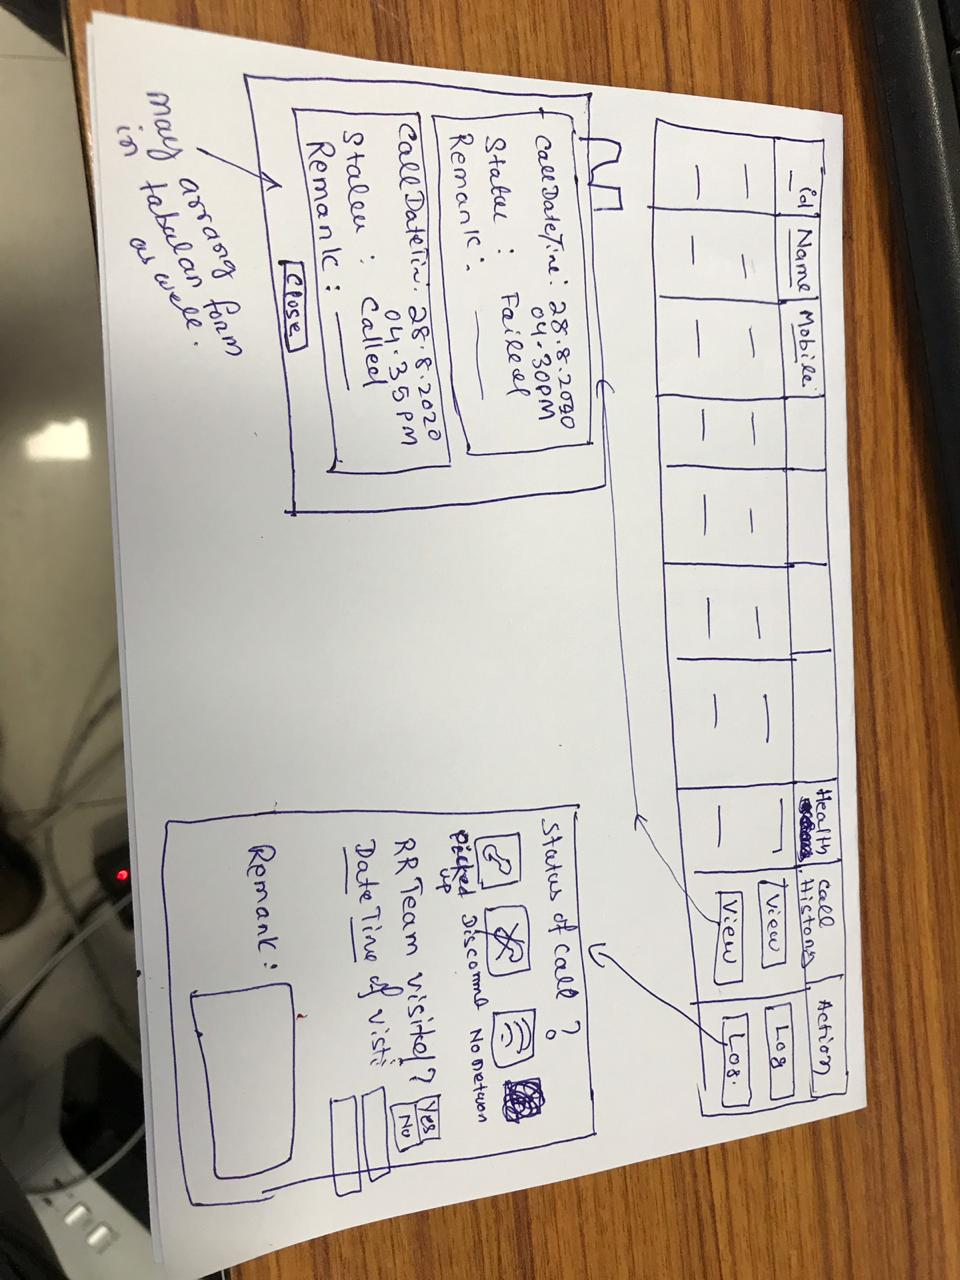 id Name Mobile Health Call History Action
View Log
View Log.
CallDateTime: 28.8.2020
04.30PM
Status : Failed
Remark :
CallDateTim: 28.8.2020
04.35PM
Status : Called
Remark :
Close
may arrang
in tabular form
as well.
Status of call ?
Picked up
Disconnect
No networ
RR Team visited? Yes
No
Date Time of visti
Remark :